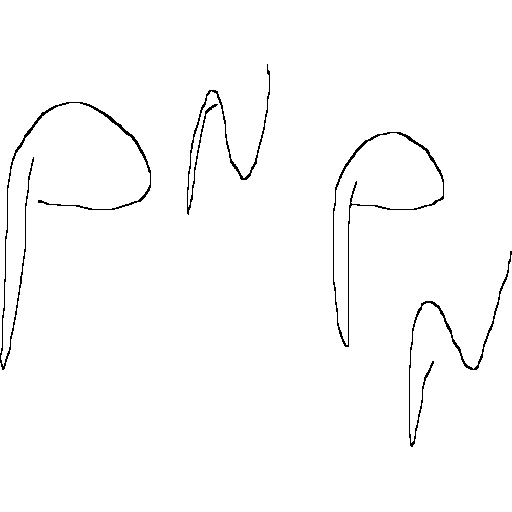 p^n p_n